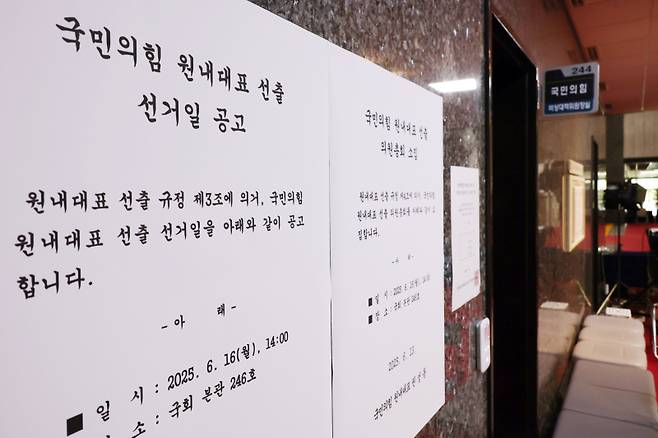 국민의힘 원내대표 선출
선거일 공고
원내대표 선출 규정 제3조에 의거, 국민의힘
원내대표 선출 선거일을 아래와 같이 공고
합니다.
- 아 래 -
■ 일 시 : 2025. 6. 16(월), 14:00
■ 장 소 : 국회 본관 246호
국민의힘 원내대표 선출
의원총회 소집
원내대표 선출 규정 의거, 국민의힘
원내대표 선출 의원총회를 아래와 같이 소
집합니다.
- 아 래 -
■ 일 시 : 2025. 6. 16(월), 14:00
■ 장 소 : 국회 본관 246호
2025. 6. 13.
국민의힘 원내대표
244
국민의힘
비상대책위원장실